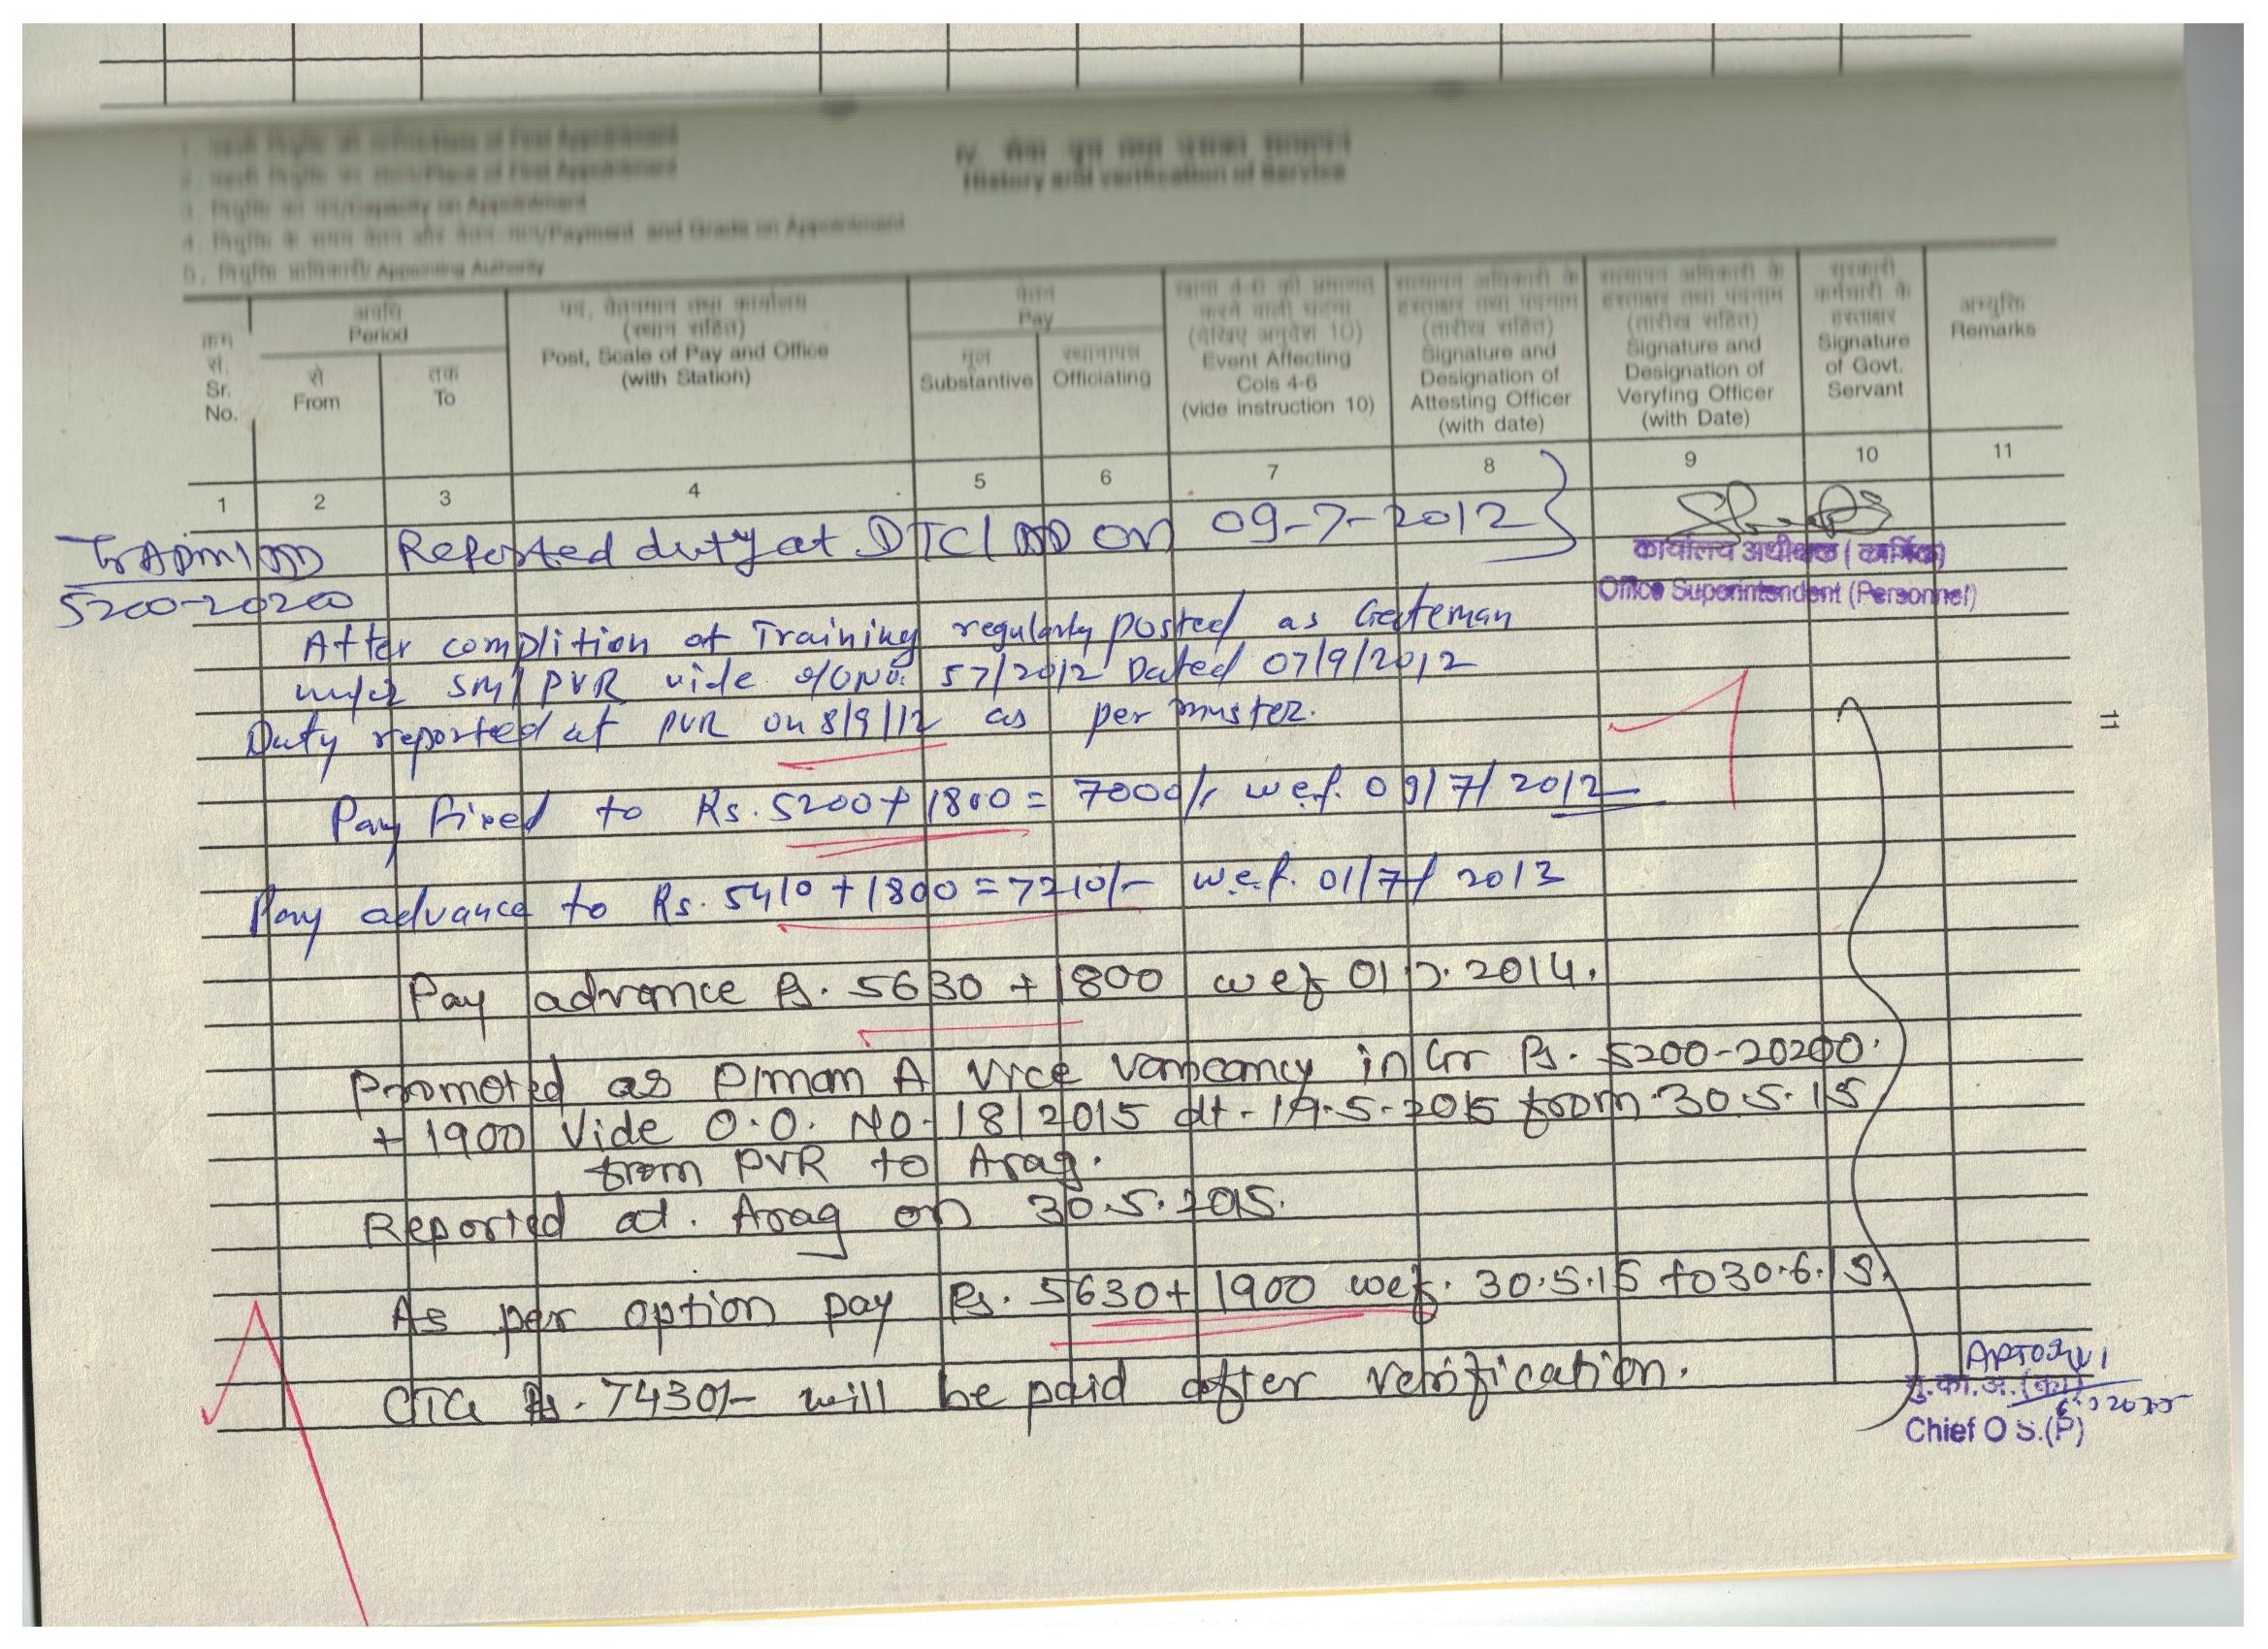 IV. सेवा वृत्त तथा उसका सत्यापन
History and verification of Service
1. पहली नियुक्ति की तारीख/Date of First Appointment
2. पहली नियुक्ति का स्थान/Place of First Appointment
3. नियुक्ति का पद/Capacity on Appointment
4. नियुक्ति के समय वेतन और वेतन-मान/Payment and Grade on Appointment
5. नियुक्ति प्राधिकारी/ Appointing Authority
क्रम सं. Sr. No.
अवधि Period
से From
तक To
पद, वेतनमान तथा कार्यालय (स्थान सहित) Post, Scale of Pay and Office (with Station)
वेतन Pay
मूल Substantive
स्थानापन्न Officiating
(देखिए अनुदेश 10) Event Affecting Cols 4-6 (vide instruction 10)
हस्ताक्षर तथा पदनाम (तारीख सहित) Signature and Designation of Attesting Officer (with date)
हस्ताक्षर तथा पदनाम (तारीख सहित) Signature and Designation of Veryfing Officer (with Date)
सरकारी कर्मचारी के हस्ताक्षर Signature of Govt. Servant
अभ्युक्ति Remarks
1 2 3 4 5 6 7 8 9 10 11
Reported duty at DTC/ on 09-7-2012
5200-20200
कार्यालय अधीक्षक (कार्मिक)
Office Superintendent (Personnel)
After complition of Training regularly posted as Gateman
under SM/PVR vide O/O No. 57/2012 Dated 07/9/2012
Duty reported at PVR on 8/9/12 as per muster.
11
Pay fixed to Rs. 5200+1800= 7000/- w.e.f. 09/7/2012
Pay advance to Rs. 5410+1800=7210/- w.e.f. 01/7/2013
Pay advance Rs. 5630 + 1800 wef 01.7.2014.
Promoted as P/man A vice vancancy in Gr Rs. 5200-20200.
+ 1900 Vide O.O. No. 18/2015 dt. 19.5.2015 from 30.5.15
from PVR to Arag.
Reported at. Arag on 30.5.2015.
As per option pay Rs. 5630+1900 wef. 30.5.15 to 30.6.15.
CTG Rs. 7430/- will be paid after verification.
मु.का.अ.(का)
Chief O S.(P)